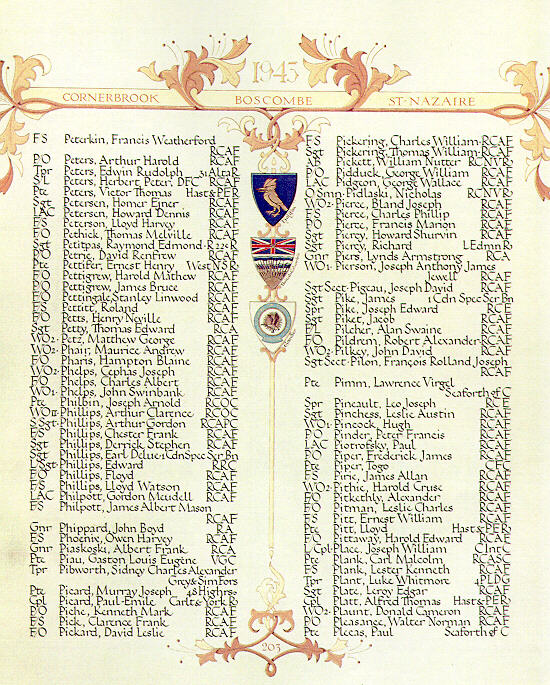 1943
CORNERBROOK BOSCOMBE ST-NAZAIRE
FS Peterkin, Francis Weatherford
RCAF
PO Peters, Arthur Harold RCAF
Tpr Peters, Edwin Rudolph 31 Alta R
S/L Peters, Herbert Peter, DFC RCAF
Pte Peters, Victor Thomas Hast&PER
Sgt Petersen, Homer Einer RCAF
LAC Petersen, Howard Dennis RCAF
FS Peterson, Lloyd Harvey RCAF
FO Pethick, Thomas Melville RCAF
Sgt Petitpas, Raymond Edmond R22eR
PO Petrie, David Renfrew RCAF
Pte Pettifer, Ernest Henry West NSR
FO Pettigrew, Harold Mathew RCAF
PO Pettigrew, James Bruce RCAF
FO Pettingale, Stanley Linwood RCAF
FS Pettitt, Roland RCAF
FO Petts, Henry Neville RCAF
Sgt Petty, Thomas Edward RCA
WO2 Petz, Matthew George RCAF
WO2 Phair, Maurice Andrew RCAF
FO Pharis, Hampton Blaine RCAF
WO2 Phelps, Cephas Joseph RCAF
FO Phelps, Charles Albert RCAF
WO1 Phelps, John Swinbank RCAF
Pte Philbin, Joseph Arnold RCOC
WOII Phillips, Arthur Clarence RCOC
S,Sgt Phillips, Arthur Gordon RCAPC
FS Phillips, Chester Frank RCAF
Sgt Phillips, Derrick Stephen RCAF
Sgt Phillips, Earl Deluc 1 Cdn Spec Ser Bn
L/Sgt Phillips, Edward RRC
FO Phillips, Floyd RCAF
FS Phillips, Lloyd Watson RCAF
LAC Philpott, Gordon Meudell RCAF
FS Philpott, James Albert Mason
RCAF
Gnr Phippard, John Boyd RA
FS Phoenix, Owen Harvey RCAF
Gnr Piaskoski, Albert Frank RCA
Pte Piau, Gaston Louis Eugène VGC
Tpr Pibworth, Sidney Charles Alexander
Grey&Sim Fors
Pte Picard, Murray Joseph 48 Highrs
Cpl Picard, Paul-Emile Carlt& York R
PO Piche, Kenneth Mark RCAF
FS Pick, Clarence Frank RCAF
FO Pickard, David Leslie RCAF
FS Pickering, Charles William RCAF
Sgt Pickering, Thomas William RCAF
AB Pickett, William Nutter RCNVR
PO Pidduck, George William RCAF
LAC Pidgeon, George Wallace RCAF
O Smn Pidlaski, Nicholas RCNVR
WO2 Pierce, Bland Joseph RCAF
FS Pierce, Charles Phillip RCAF
PO Pierce, Francis Marion RCAF
Sgt Piercy, Howard Shurvin RCAF
Sgt Piercy, Richard L Edmn R
Gnr Piers, Lynds Armstrong RCA
WO1 Pierson, Joseph Anthony James
Jewell RCAF
Sgt Sect Pigeau, Joseph David RCAF
Sgt Pike, James 1 Cdn Spec Ser Bn
Spr Pike, Joseph Edward RCE
Sgt Piket, Jacob RCAF
F/L Pilcher, Alan Swaine RCAF
FO Pildrem, Robert Alexander RCAF
WO2 Pilkey, John David RCAF
Sgt Sect Pilon, François Rolland Joseph
RCAF
Pte Pimm, Lawrence Virgel
Seaforth of C
Spr Pineault, Leo Joseph RCE
Sgt Pinchess, Leslie Austin RCAF
WO1 Pincock, Hugh RCAF
PO Pinder, Peter Francis RCAF
LAC Piotrofsky, Paul RCAF
PO Piper, Frederick James RCAF
Pte Piper, Togo CFC
FS Pirie, James Allan RCAF
WO2 Pithie, Harold Cruse RCAF
FO Pitkethly, Alexander RCAF
FO Pitman, Leslie Charles RCAF
FS Pitt, Ernest William RCAF
Pte Pitt, Lloyd Hast&PER
FO Pittaway, Harold Edward RCAF
L/Cpl Place, Joseph William C Int C
Pte Plank, Carl Malcolm RCASC
FS Plank, Lester Kenneth RCAF
Tpr Plant, Luke Whitmore 4 PLDG
Sgt Plate, Leroy Edgar RCAF
Cpl Platt, Alfred Thomas Hast&PER
WO2 Plaunt, Donald Cameron RCAF
PO Pleasance, Walter Norman RCAF
Pte Plecas, Paul Seaforth of C
203